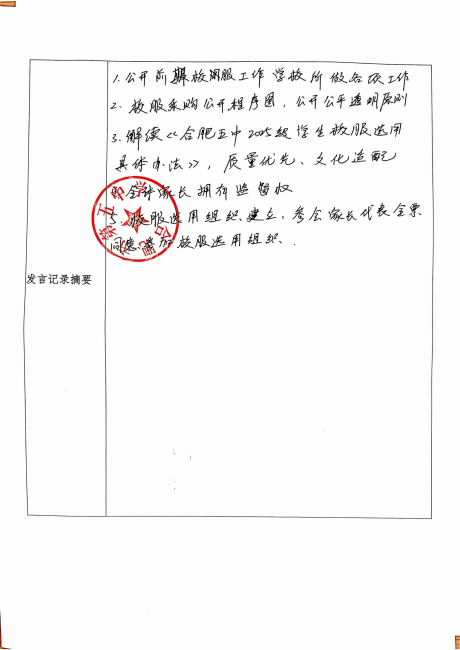 1. 公开前期校园服工作 学校所做各项工作
2. 校服采购公开程序图，公开公平透明原则
3. 解读《合肥五中2025级学生校服选用
具体办法》，质量优先、文化适配
4. 全体家长拥有监督权
5. 校服选用组织建立，参会家长代表全票
同意参加校服选用组织.
发言记录摘要